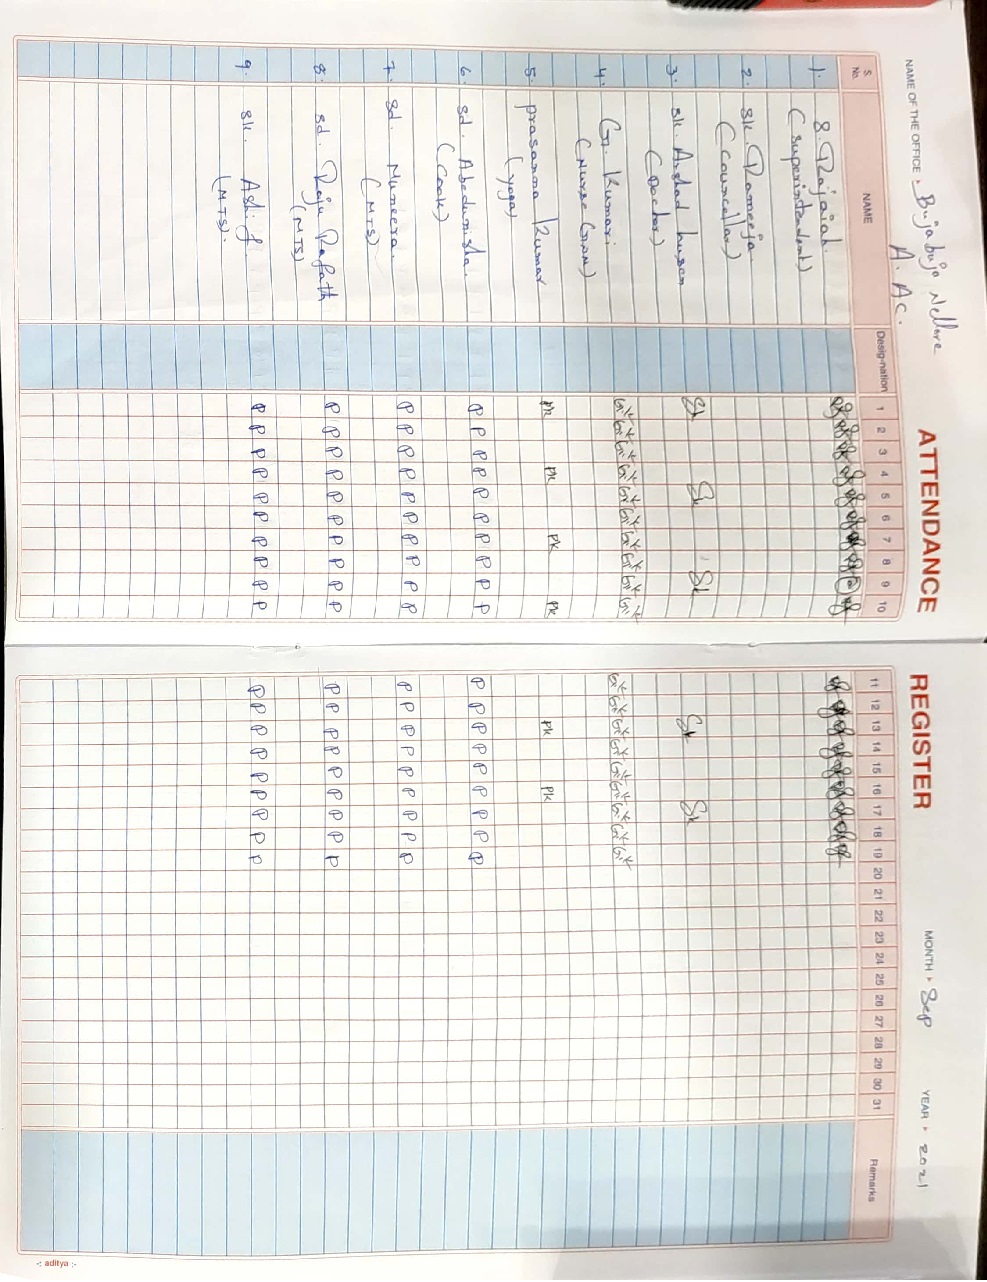 ATTENDANCE REGISTER
NAME OF THE OFFICE Bujabuja Nellore MONTH Sep YEAR 2021
A. Ac.
S. No. NAME Desig-nation 1 2 3 4 5 6 7 8 9 10 11 12 13 14 15 16 17 18 19 20 21 22 23 24 25 26 27 28 29 30 31 Remarks
1. S. Rajaiah
(Superintendent)
2. Sk. Rameeja
(Councellar)
3. Sk. Arshad husen Sk Sk Sk Sk Sk
(Doctor)
4. G. Kumari G.K G.K G.K G.K G.K G.K G.K G.K G.K G.K G.K G.K G.K G.K G.K G.K G.K G.K G.K
(Nurse GNM)
5. Prasanna Kumar Pk Pk Pk Pk Pk Pk
(yoga)
6. Sd. Abedunisha P P P P P P P P P P P P P P P P P P P
(Cook)
7. Sd. Muneera. P P P P P P P P P P P P P P P P P P P
(MTS)
8. Sd. Raju Rafath P P P P P P P P P P P P P P P P P P P
(MTS)
9. Sk. Ashif. P P P P P P P P P P P P P P P P P P P
(MTS).
-: aditya :-